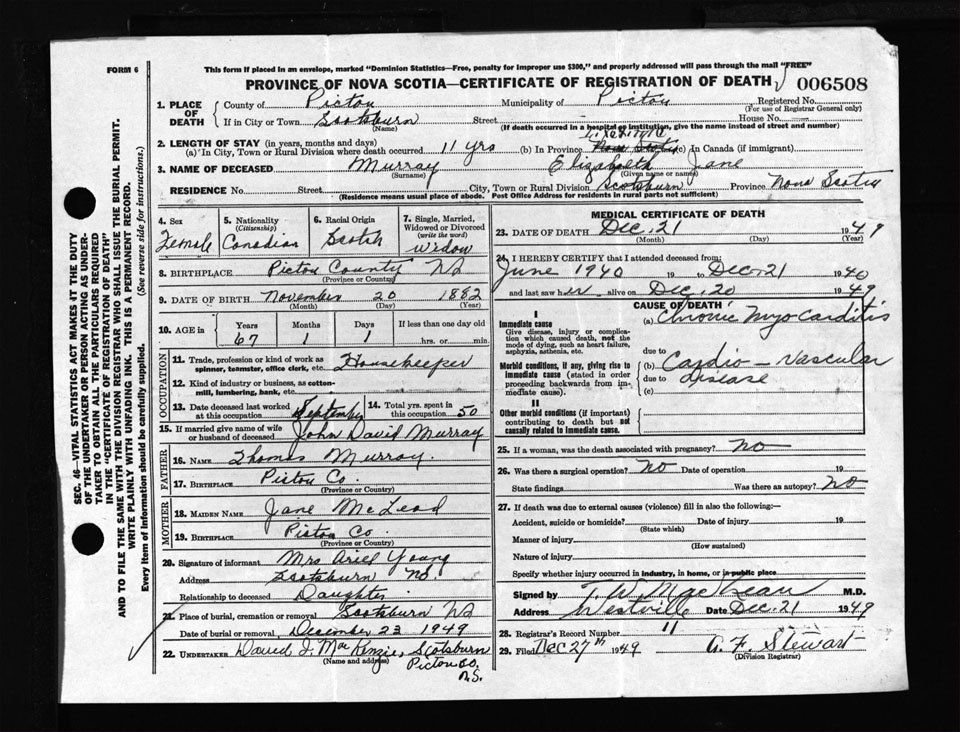 FORM 6
This form if placed in an envelope, marked "Dominion Statistics—Free, penalty for improper use $300," and properly addressed will pass through the mail "FREE"
PROVINCE OF NOVA SCOTIA—CERTIFICATE OF REGISTRATION OF DEATH 006508
1. PLACE OF DEATH County of Pictou Municipality of Pictou Registered No. (For use of Registrar General only)
If in City or Town Scotsburn (Name) Street House No.
(If death occurred in a hospital or institution, give the name instead of street and number)
2. LENGTH OF STAY (in years, months and days)
(a) In City, Town or Rural Division where death occurred 11 yrs (b) In Province lifetime Nova Scotia (c) In Canada (if immigrant)
3. NAME OF DECEASED Murray (Surname) Elizabeth Jane (Given name or names)
RESIDENCE No. Street City, Town or Rural Division Scotsburn Province Nova Scotia
(Residence means usual place of abode. Post Office Address for residents in rural parts not sufficient)
4. Sex Female
5. Nationality (Citizenship) Canadian
6. Racial Origin Scotch
7. Single, Married, Widowed or Divorced (write the word) Widow
8. BIRTHPLACE Pictou County NS (Province or Country)
9. DATE OF BIRTH November 20 1882 (Month) (Day) (Year)
10. AGE in Years 67 Months 1 Days 1 If less than one day old hrs. or min.
OCCUPATION
11. Trade, profession or kind of work as spinner, teamster, office clerk, etc. Housekeeper
12. Kind of industry or business, as cotton-mill, lumbering, bank, etc.
13. Date deceased last worked at this occupation September
14. Total yrs. spent in this occupation 50
15. If married give name of wife or husband of deceased John David Murray
FATHER
16. NAME Thomas Murray.
17. BIRTHPLACE Pictou Co. (Province or Country)
MOTHER
18. MAIDEN NAME Jane McLeod
19. BIRTHPLACE Pictou Co. (Province or Country)
20. Signature of informant Mrs Ariel Young
Address Scotsburn NS
Relationship to deceased Daughter
21. Place of burial, cremation or removal Scotsburn NS
Date of burial or removal December 23 1949
22. UNDERTAKER David J. MacKenzie, Scotsburn
(Name and address) Pictou Co. N.S.
MEDICAL CERTIFICATE OF DEATH
23. DATE OF DEATH Dec. 21 1949
(Month) (Day) (Year)
24. I HEREBY CERTIFY that I attended deceased from:
June 1940 19 to Dec. 21 1940
and last saw her alive on Dec. 20 1949
CAUSE OF DEATH
I
Immediate cause
Give disease, injury or complication which caused death, not the mode of dying, such as heart failure, asphyxia, asthenia, etc.
(a) Chronic Myo-Carditis
due to
Morbid conditions, if any, giving rise to immediate cause (stated in order proceeding backwards from immediate cause).
(b) Cardio-Vascular
due to disease
(c)
II
Other morbid conditions (if important) contributing to death but not causally related to immediate cause.
25. If a woman, was the death associated with pregnancy? No
26. Was there a surgical operation? No Date of operation 19
State findings Was there an autopsy? No
27. If death was due to external causes (violence) fill in also the following:—
Accident, suicide or homicide? Date of injury 19
(State which)
Manner of injury
(How sustained)
Nature of injury
Specify whether injury occurred in industry, in home, or in public place
Signed by T. W. MacLean M.D.
Address Westville Date Dec. 21 1949
28. Registrar's Record Number 11
29. Filed Dec 27th 1949 G. F. Stewart
(Division Registrar)
SEC. 46—VITAL STATISTICS ACT MAKES IT THE DUTY
OF THE UNDERTAKER OR PERSON ACTING AS UNDER-
TAKER TO OBTAIN ALL THE PARTICULARS REQUIRED
IN THE "CERTIFICATE OF REGISTRATION OF DEATH"
AND TO FILE THE SAME WITH THE DIVISION REGISTRAR WHO SHALL ISSUE THE BURIAL PERMIT.
WRITE PLAINLY WITH UNFADING INK. THIS IS A PERMANENT RECORD.
Every Item of Information should be carefully supplied. (See reverse side for instructions.)